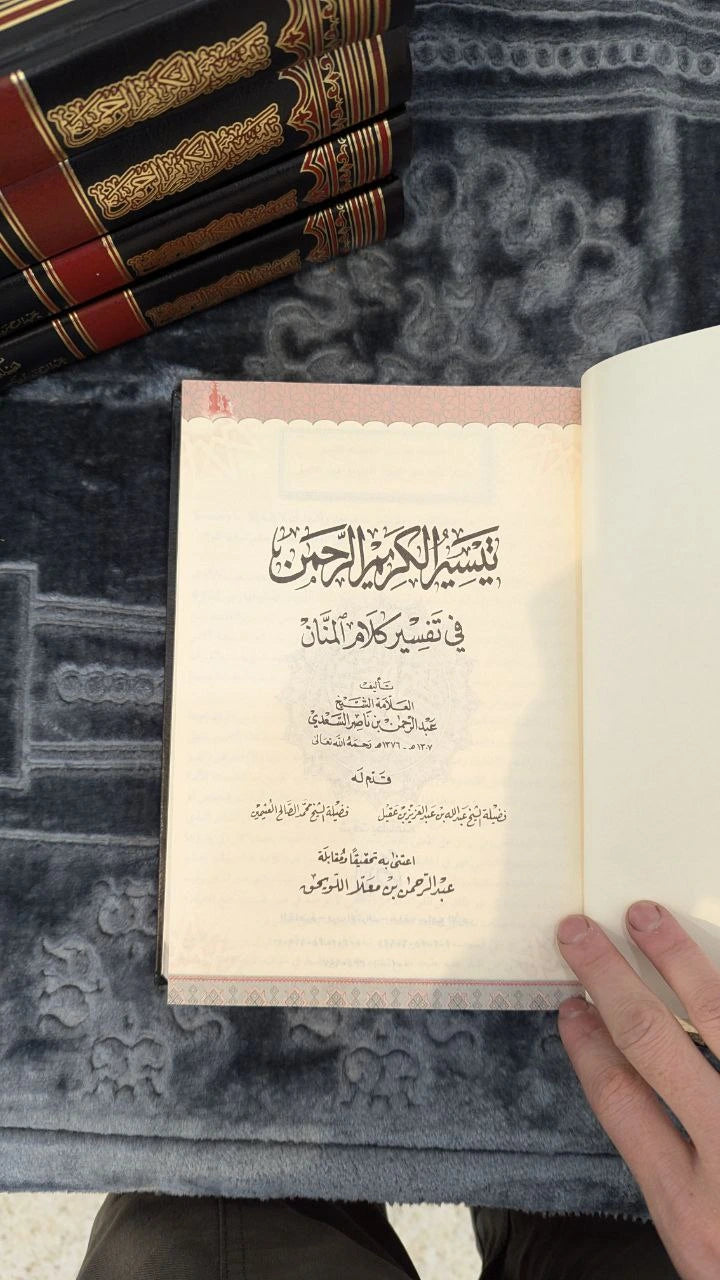 تيسير الكريم الرحمن
تيسير الكريم الرحمن
تيسير الكريم الرحمن
تيسير الكريم الرحمن
تَيسِيرُ الكَرِيمِ الرَّحمَن
في تَفسِير كَلَام المَنَّان
تَأليف
العَلّامَة الشَّيخ
عَبد الرَّحمٰن بن نَاصِر السَّعدي
١٣٠٧هـ - ١٣٧٦هـ رَحِمَهُ اللَّه تَعَالىٰ
قَدَّم لَه
فضيلة الشيخ عبد الله بن عبد العزيز بن عقيل فضيلة الشيخ محمد الصالح العثيمين
اعتنىٰ به تحقيقًا ومُقابلة
عبد الرحمٰن بن معلّا اللويحق